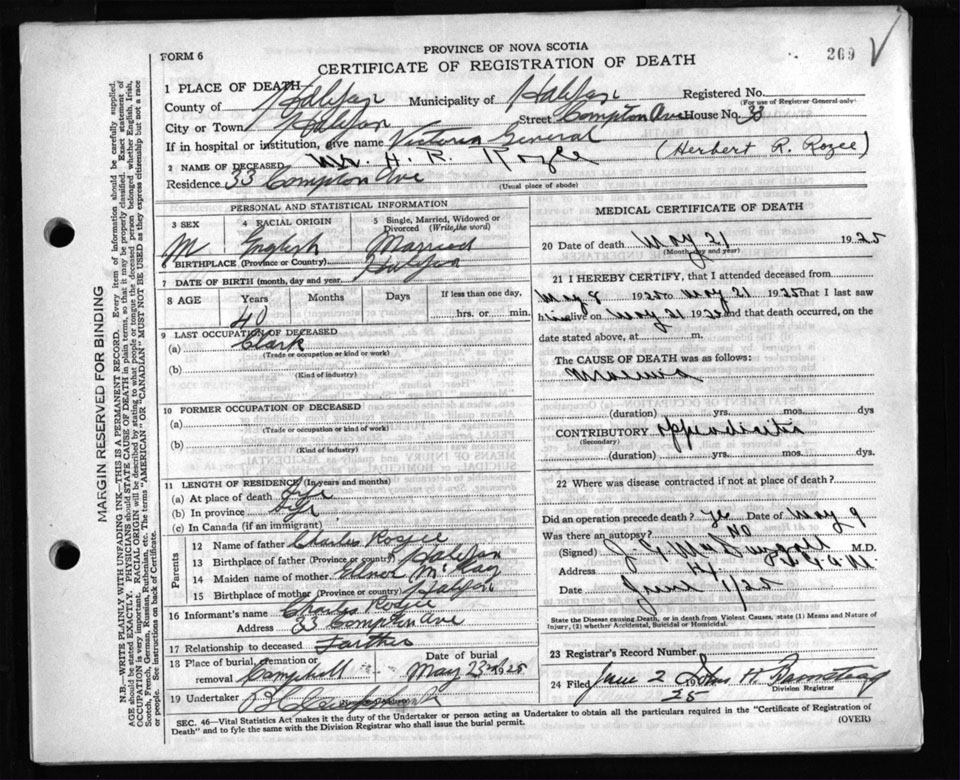 FORM 6
PROVINCE OF NOVA SCOTIA
269
CERTIFICATE OF REGISTRATION OF DEATH
1 PLACE OF DEATH
County of Halifax Municipality of Halifax Registered No.
(For use of Registrar General only)
City or Town Halifax Street Compton Ave House No. 33
If in hospital or institution, give name Victoria General
2 NAME OF DECEASED Mr. H. R. Rozee (Herbert R. Rozee)
Residence 33 Compton Ave
(Usual place of abode)
PERSONAL AND STATISTICAL INFORMATION
3 SEX 4 RACIAL ORIGIN 5 Single, Married, Widowed or Divorced (Write the word)
M English Married
BIRTHPLACE (Province or Country) Halifax
7 DATE OF BIRTH (month, day and year)
8 AGE Years Months Days If less than one day,
hrs. or min.
40
9 LAST OCCUPATION OF DECEASED
(a) Clark
(Trade or occupation or kind or work)
(b)
(Kind of industry)
10 FORMER OCCUPATION OF DECEASED
(a)
(Trade or occupation or kind of work)
(b)
(Kind of industry)
11 LENGTH OF RESIDENCE (In years and months)
(a) At place of death Life
(b) In province Life
(c) In Canada (if an immigrant)
Parents
12 Name of father Charles Rozee
13 Birthplace of father (Province or country) Halifax
14 Maiden name of mother
15 Birthplace of mother (Province or country) Halifax
16 Informant's name Charles Rozee
Address 33 Compton Ave
17 Relationship to deceased Farther
18 Place of burial, cremation or removal Date of burial
May 23rd 1925
19 Undertaker
MEDICAL CERTIFICATE OF DEATH
20 Date of death May 21 1925
(Month, day and year)
21 I HEREBY CERTIFY, that I attended deceased from
May 8 1925 to May 21 1925 that I last saw
him alive on May 21 1925 and that death occurred, on
the date stated above, at m.
The CAUSE OF DEATH was as follows:
Uraemia
(duration) yrs. mos. dys
CONTRIBUTORY appendicitis
(Secondary)
(duration) yrs. mos. dys.
22 Where was disease contracted if not at place of death?
Did an operation precede death? Yes Date of May 9
Was there an autopsy? No
(Signed) M.D.
Address
Date June 1/25
State the Disease causing Death, or in death from Violent Causes, state (1) Means and Nature of
Injury, (2) whether Accidental, Suicidal or Homicidal.
23 Registrar's Record Number
24 Filed June 2 19 25
Division Registrar
SEC. 46—Vital Statistics Act makes it the duty of the Undertaker or person acting as Undertaker to obtain all the particulars required in the "Certificate of Registration of
Death" and to fyle the same with the Division Registrar who shall issue the burial permit.
(OVER)
MARGIN RESERVED FOR BINDING
N.B.—WRITE PLAINLY WITH UNFADING INK—THIS IS A PERMANENT RECORD. Every item of information should be carefully supplied.
AGE should be stated EXACTLY. PHYSICIANS should STATE CAUSE OF DEATH in plain terms, so that it may be properly classified. Exact statement of
OCCUPATION is very important. RACIAL ORIGIN will be described by stating to what people or tongue the deceased person belonged whether English, Irish,
Scotch, French, German, Russian, Ruthenian, etc. The terms "AMERICAN" OR "CANADIAN" MUST NOT BE USED as they express citizenship but not a race
or people. See instructions on back of Certificate.